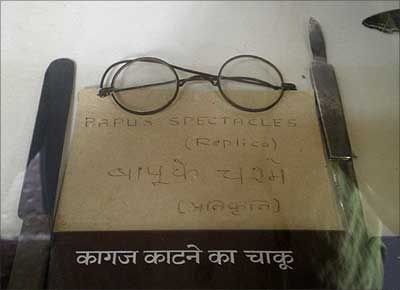 BAPU'S SPECTACLES
(Replica)
बापू के चश्मे
(प्रतिकृति)
कागज काटने का चाकू